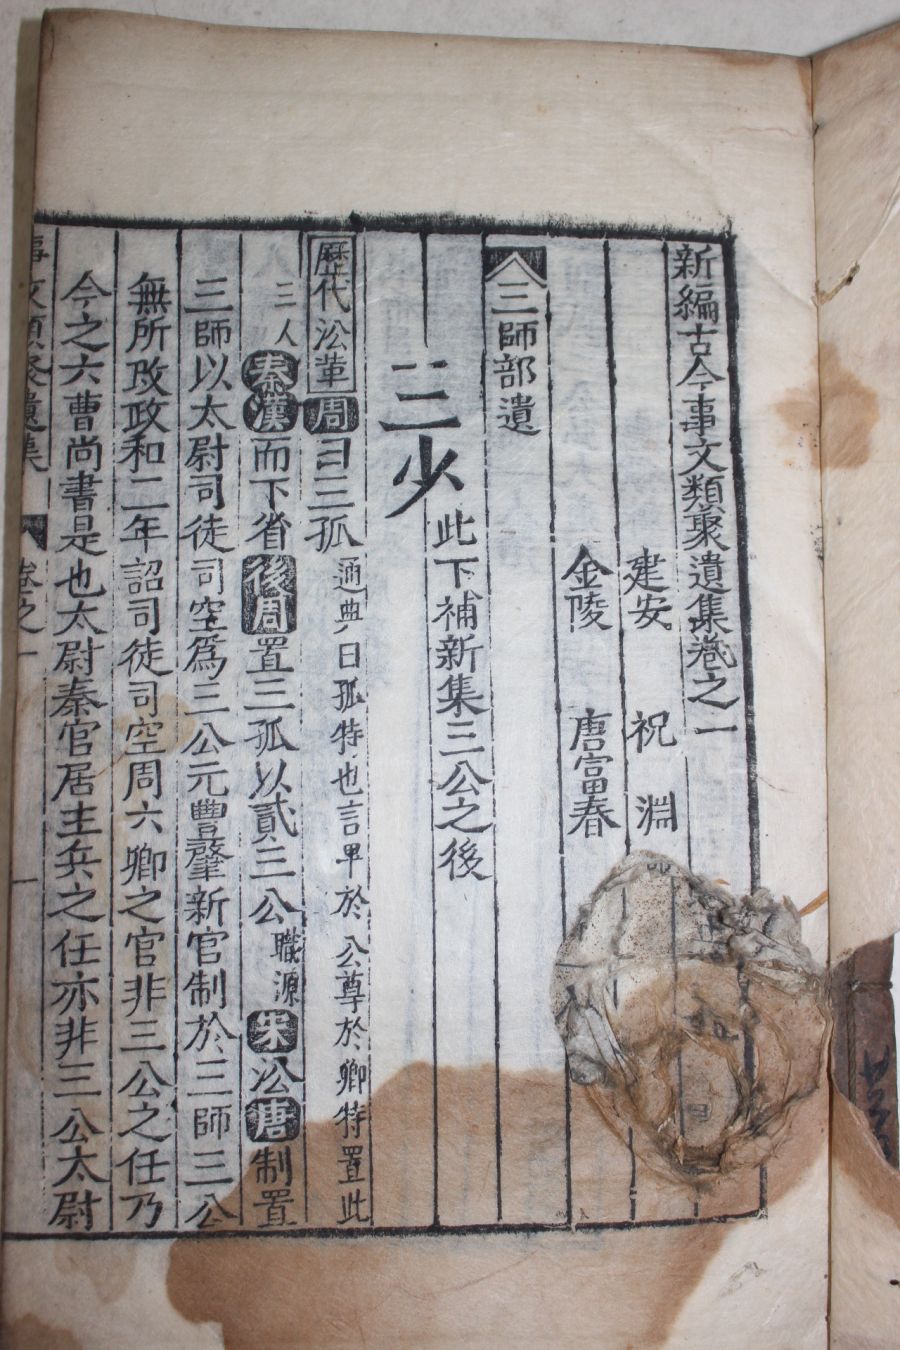 新編古今事文類聚遺集卷之一
建安 祝 淵
金陵 唐富春
三師部遺
三少此下補新集三公之後
歷代㳂革周曰三孤通典曰孤特也言卑於公尊於卿特置此
三人秦漢而下省後周置三孤以貳三公職源宋㳂唐制置
三師以太尉司徒司空爲三公元豐肇新官制於三師三公
無所攺政和二年詔司徒司空周六卿之官非三公之任乃
今之六曹尚書是也太尉秦官居主兵之任亦非三公太尉
事文類聚遺集 卷之一 一